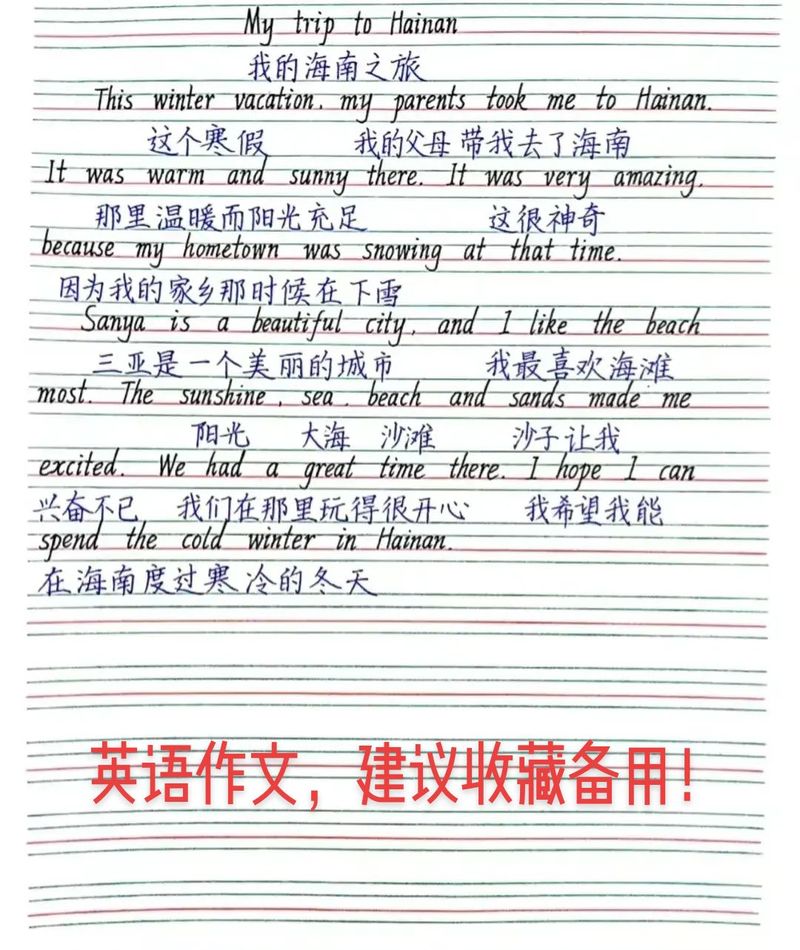 My trip to Hainan
我的海南之旅
This winter vacation, my parents took me to Hainan.
这个寒假 我的父母带我去了海南
It was warm and sunny there. It was very amazing,
那里温暖而阳光充足 这很神奇
because my hometown was snowing at that time.
因为我的家乡那时候在下雪
Sanya is a beautiful city, and I like the beach
三亚是一个美丽的城市 我最喜欢海滩
most. The sunshine, sea, beach and sands made me
阳光 大海 沙滩 沙子让我
excited. We had a great time there. I hope I can
兴奋不已 我们在那里玩得很开心 我希望我能
spend the cold winter in Hainan.
在海南度过寒冷的冬天
英语作文，建议收藏备用！